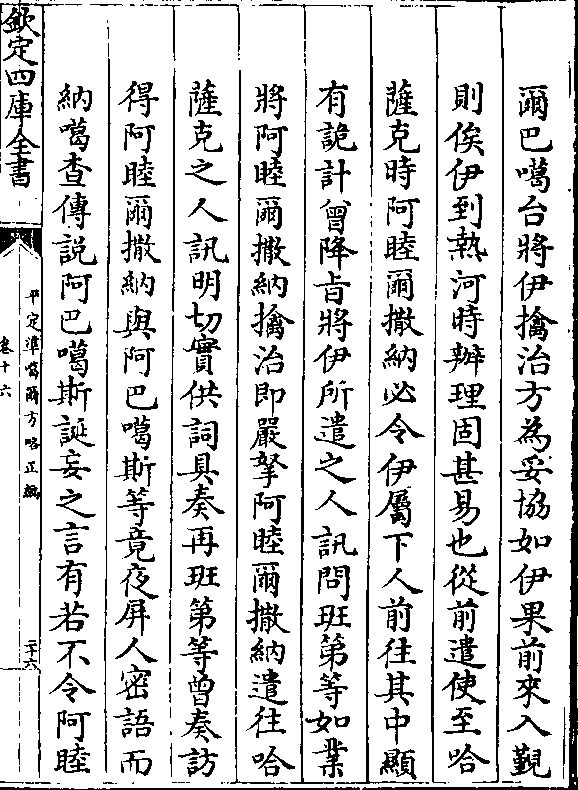 爾巴噶台將伊擒治方為妥協如伊果前來入覲
則俟伊到熱河時辦理固甚易也從前遣使至哈
薩克時阿睦爾撒納必令伊屬下人前往其中顯
有詭計曾降旨將伊所遣之人訊問班第等如業
將阿睦爾撒納擒治即嚴拏阿睦爾撒納遣往哈
薩克之人訊明切實供詞具奏再班第等曾奏訪
得阿睦爾撒納與阿巴噶斯等竟夜屏人密語而
納噶查傳說阿巴噶斯誕妄之言有若不令阿睦
欽定四庫全書
平定準噶爾方略正編
卷十六
二十六